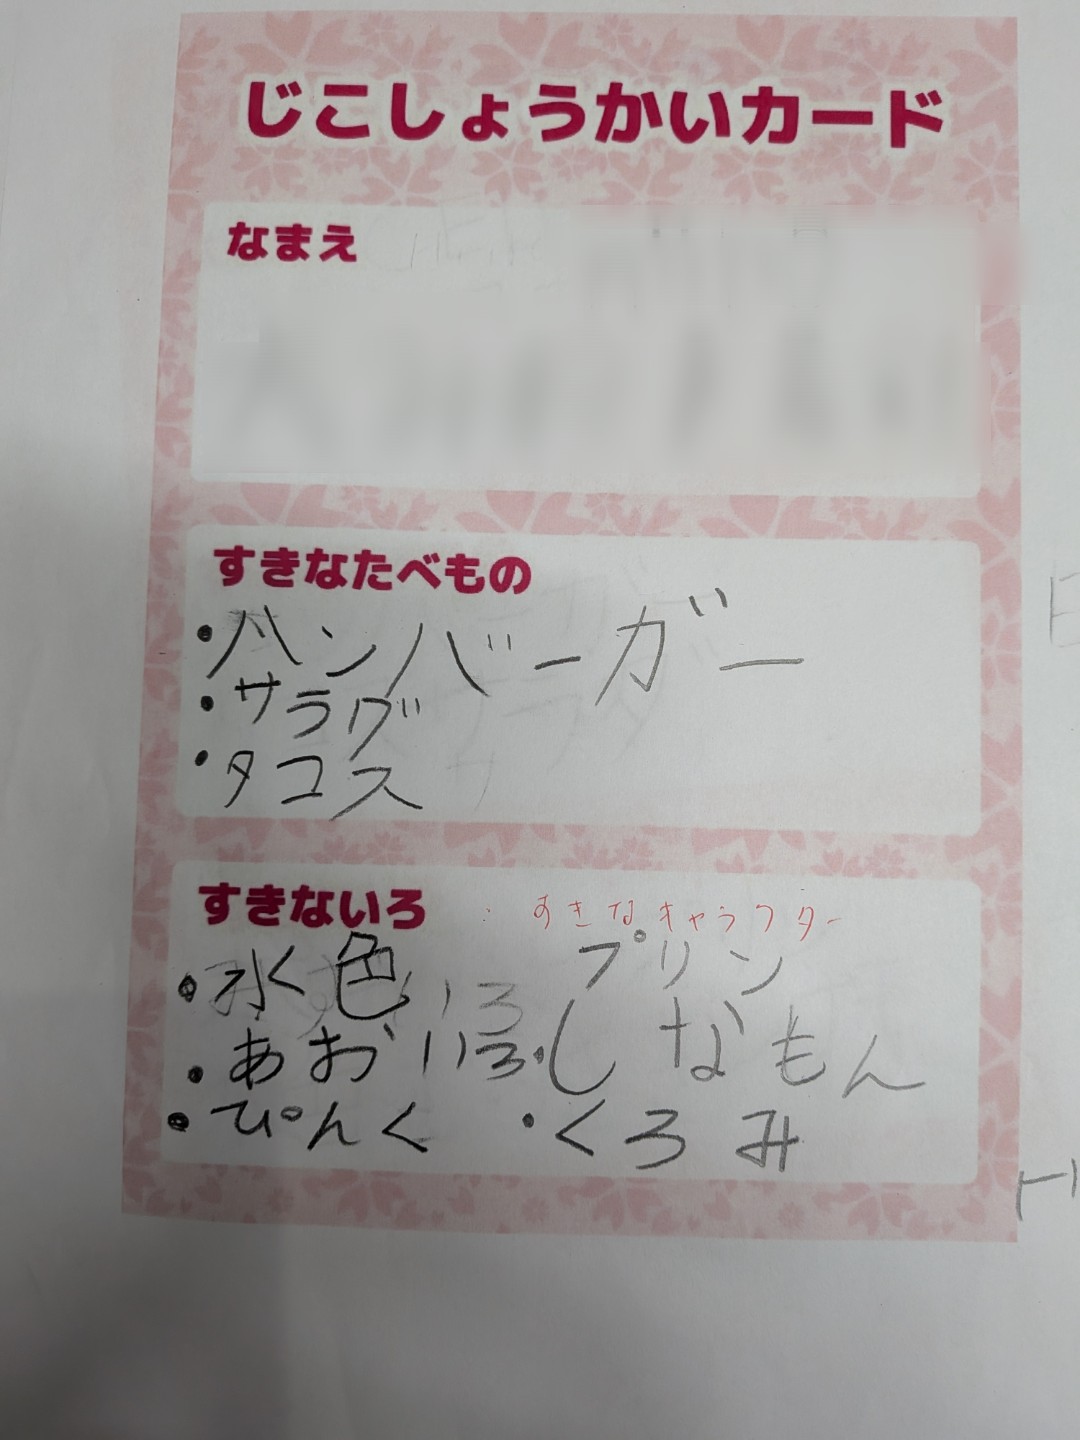 じこしょうかいカード
なまえ
すきなたべもの
・ハンバーガー
・サラダ
・タコス
すきないろ
：すきなキャラクター
・水色
プリン
・あおいろ
・しなもん
・ぴんく
・くろみ